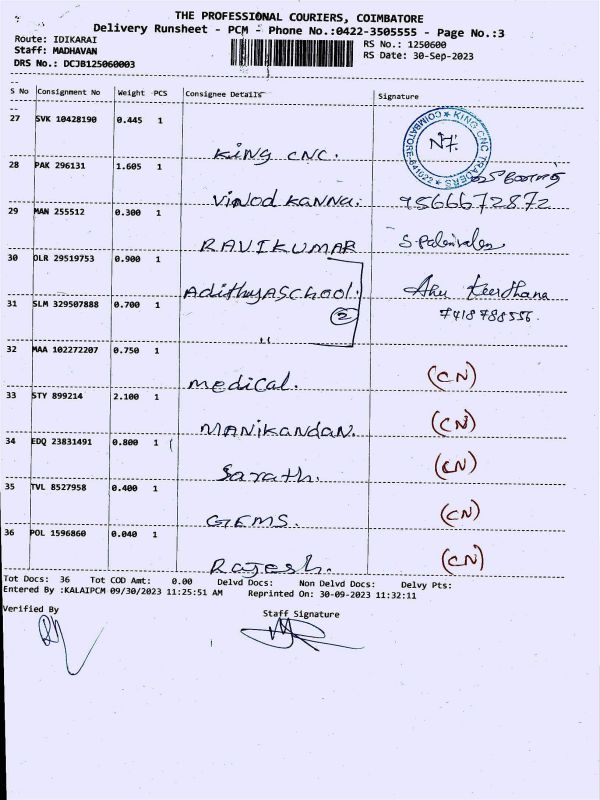 THE PROFESSIONAL COURIERS, COIMBATORE
Delivery Runsheet - PCM - Phone No.:0422-3505555 - Page No.:3
Route: IDIKARAI
Staff: MADHAVAN
DRS No.: DCJB125060003
RS No.: 1250600
RS Date: 30-Sep-2023
S No Consignment No Weight PCS Consignee Details Signature
27 SVK 10428190 0.445 1
KING CNC TRADERS ★ COIMBATORE-641022 ★
KiNG CNC.
28 PAK 296131 1.605 1
Vinod Kanna. 9566672872
29 MAN 255512 0.300 1
RAVIKUMAR
30 DLR 29519753 0.900 1
AdithyASchool. Anu Keerthana
31 SLM 329507888 0.700 1
② 7418788556.
32 MAA 102272207 0.750 1
medical. (CN)
33 STY 899214 2.100 1
MANikandan. (CN)
34 EDQ 23831491 0.800 1
Sarath. (CN)
35 TVL 8527958 0.400 1
GEMS. (CN)
36 POL 1596860 0.040 1
Rajesh. (CN)
Tot Docs: 36 Tot COD Amt: 0.00 Delvd Docs: Non Delvd Docs: Delvy Pts:
Entered By :KALAIPCM 09/30/2023 11:25:51 AM Reprinted On: 30-09-2023 11:32:11
Verified By Staff Signature